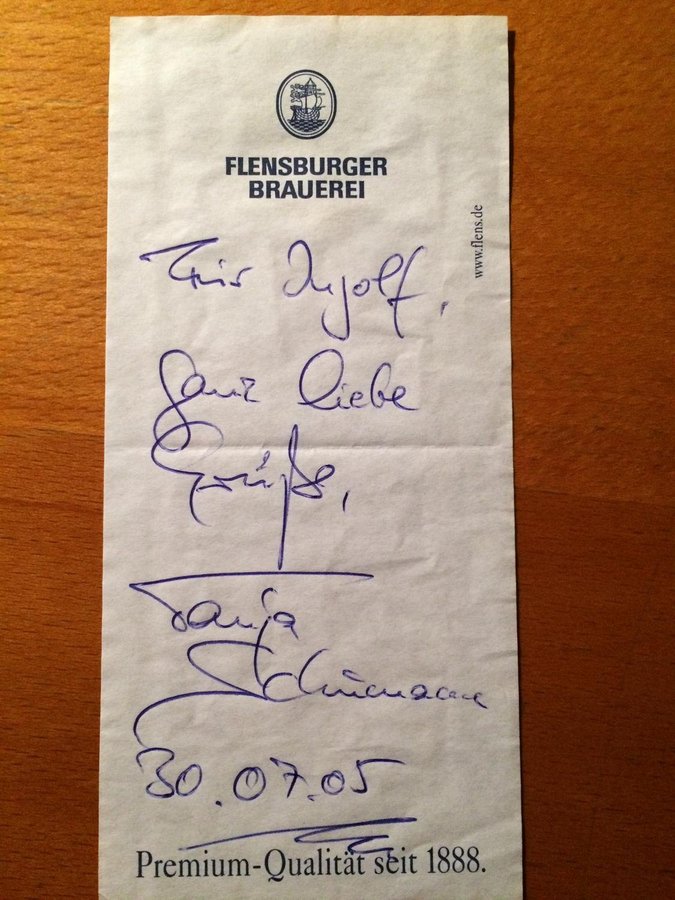 FLENSBURGER
BRAUEREI
www.flens.de
Für Ingolf,
ganz liebe
Grüße,
Tanja
Schümann
30.07.05
Premium-Qualität seit 1888.